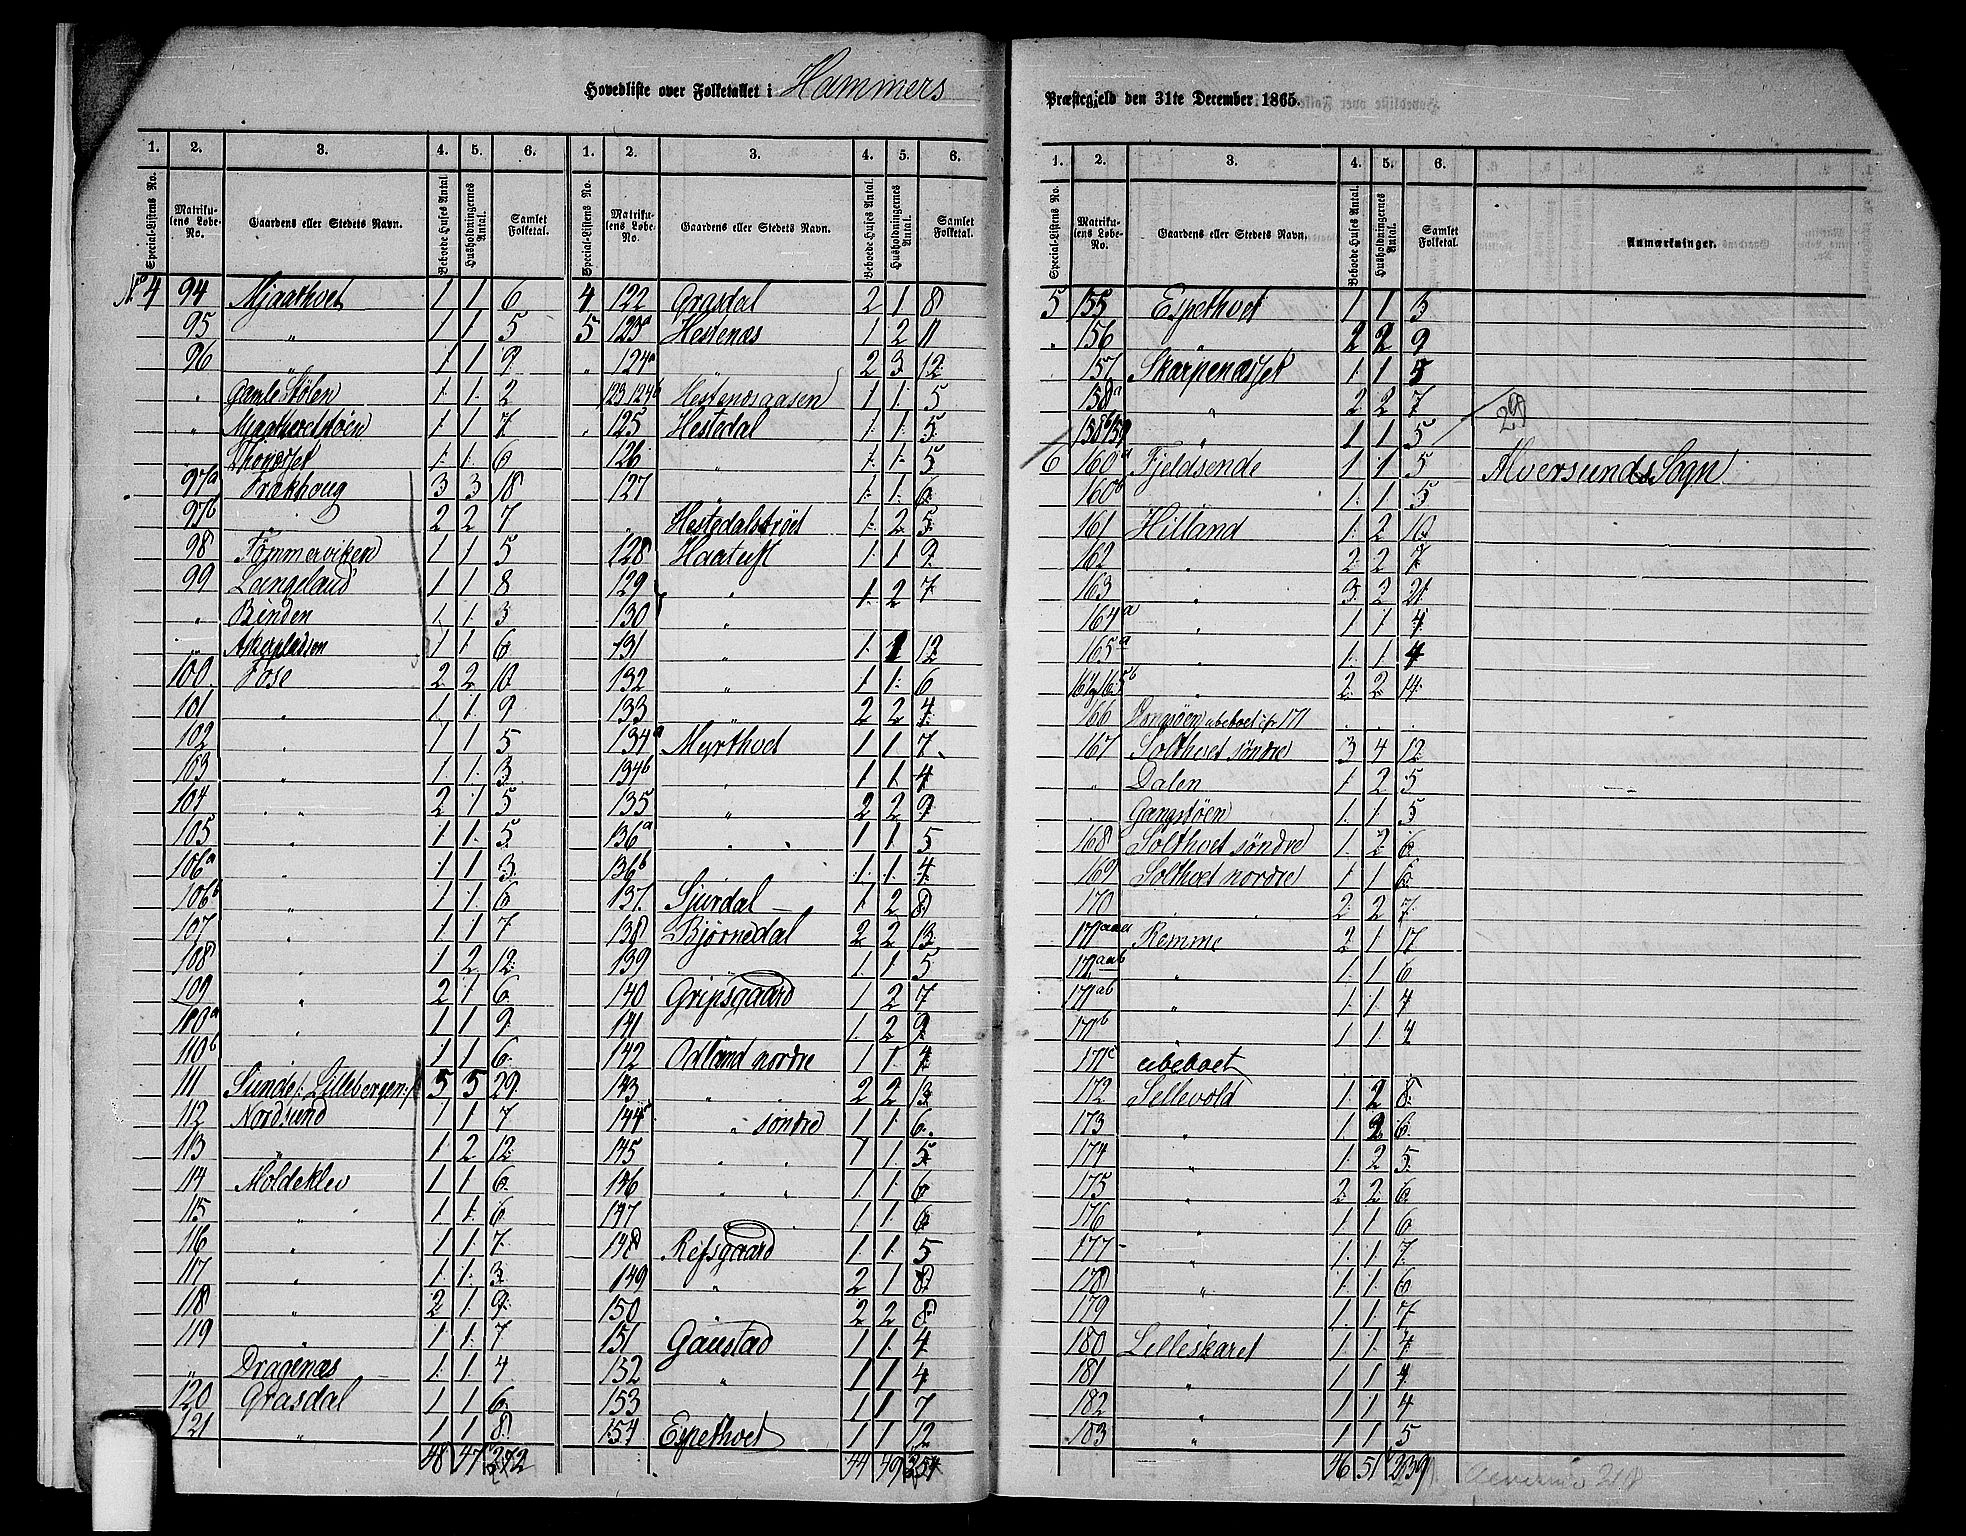 Hovedliste over Folketallet i Hammers
Præstegjeld den 31te December 1865.
1. 2. 3. 4. 5. 6. 1. 2. 3. 4. 5. 6.
Special-Listens No. Matrikulens Løbe-No. Gaardens eller Stedets Navn. Beboede Huses Antal. Husholdningernes Antal. Samlet Folketal. Special-Listens No. Matrikulens Løbe-No. Gaardens eller Stedets Navn. Beboede Huses Antal. Husholdningernes Antal. Samlet Folketal.
No 4 94 Mjaathvet 1 1 6
95 " 1 1 5
96 " 1 1 9
" Gamle Stølen 1 1 2
" Mjaathvetstøen 1 1 7
1 1 6
97a Frækhoug 3 3 18
97b 2 2 7
98 Tømmerviken 1 1 5
99 Langeland 1 1 8
" Binden 1 1 3
" Akerpladsen 1 1 6
100 Fose 2 2 10
101 " 1 1 9
102 " 1 1 5
103 " 1 1 3
104 " 2 1 5
105 " 1 1 5
106a " 1 1 3
106b " 1 1 6
107 " 1 1 7
108 " 1 2 12
109 " 2 1 6
110a " 1 1 9
110b 1 1 6
111 Sunde /: Lillebergen :/ 5 5 29
112 Nordsund 1 1 7
113 " 1 2 12
114 Moldeklev 1 1 6
115 " 1 1 6
116 " 1 1 7
117 " 1 1 3
118 " 2 1 9
119 " 1 1 7
" Dragenæs 1 1 4
120 Grasdal 1 1 6
121 " 1 1 8
48 47 272
4 122 Grasdal 2 1 8
5 123a Hestenæs 1 2 11
" 124a 2 3 12
123 124b Hestenæsaasen 1 1 5
" 125 Hestedal 1 1 5
126 " 1 1 5
127 " 1 1 6
" Hestedalstrøet 1 2 5
128 Haatuft 1 1 9
129 " 1 2 7
130 "
131 " 1 1 12
132 " 1 1 6
133 " 2 2 4
134a Myrthvet 1 1 7
134b 1 1 4
135 " 2 2 9
136a " 1 1 5
136b 1 1 4
137 Sjurdal 1 2 8
138 Bjørnedal 2 2 13
139 1 1 5
140 Gripsgaard 1 2 7
141 1 2 9
142 Odland nordre 1 1 4
143 " " 2 2 13
144 " søndre 1 1 6
145 " " 1 1 5
146 " " 1 1 6
147 1 1 6
148 Refsgaard 1 1 5
149 " 2 1 8
150 " 2 2 8
151 Gaustad 1 1 4
152 " 1 1 4
153 1 1 7
154 Espethvet 1 1 12
44 49 254
1. 2. 3. 4. 5. 6.
Special-Listens No. Matrikulens Løbe-No. Gaardens eller Stedets Navn. Beboede Huses Antal. Husholdningernes Antal. Samlet Folketal. Anmærkninger.
5 155 Espethvet 1 1 3
" 156 " 2 2 9
157 Skarpenæsset 1 1
158a " 2 2 7
158b 159 " 1 1 5
6 160a Fjeldsende 1 1 5 Alversunds Sogn
160b 1 1 5
161 Hilland 1 2 10
162 " 2 2 7
163 " 3 3 21
164a " 1 1 4
165a " 1 1 4
164b 165b " 2 2 14
166 ubeboet cfr 171
167 Solthvet søndre 3 4 12
" Dalen 1 2 5
Gangstøen 1 1 5
168 Solthvet søndre 1 2 6
169 Solthvet nordre 1 1 6
170 " " 2 2 7
171aaa Remme 2 1 17
171aab " 1 1 6
171ab " 1 1 4
171b 1 1 4
171c ubeboet
172 Sellevold 1 2 8
173 " 1 2 6
174 " 1 2 5
175 " 2 2 6
176 " 1 1 6
177 " 1 1 7
178 " 1 1 6
179 1 1 7
180 Lilleskaret 1 1 4
181 " 1 1 4
182 " 1 1 4
183 " 1 1 5
46 51 239